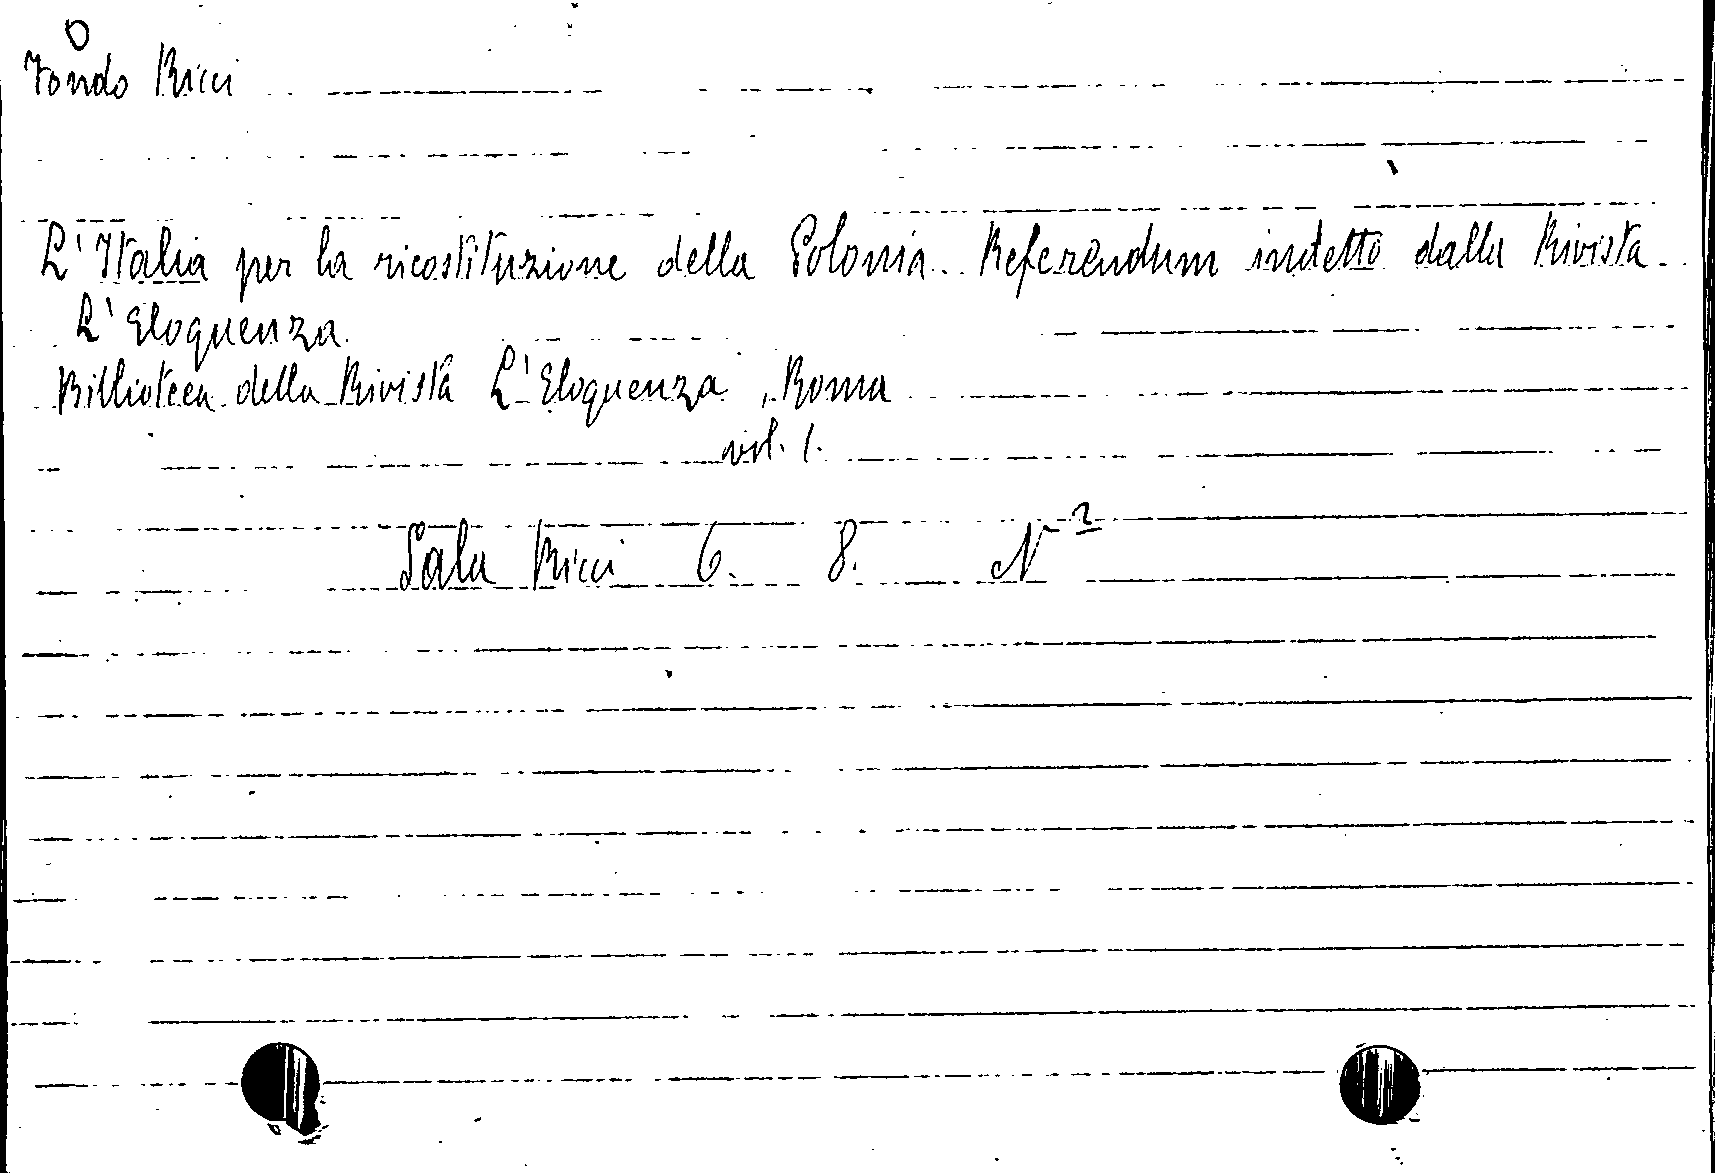 O
Fondo Ricci
L'Italia per la ricostituzione della Polonia. Referendum indetto dalla Rivista
L'Eloquenza
Biblioteca della Rivista L'Eloquenza, Roma
vol. 1.
Sala Ricci 6. 8. N 2